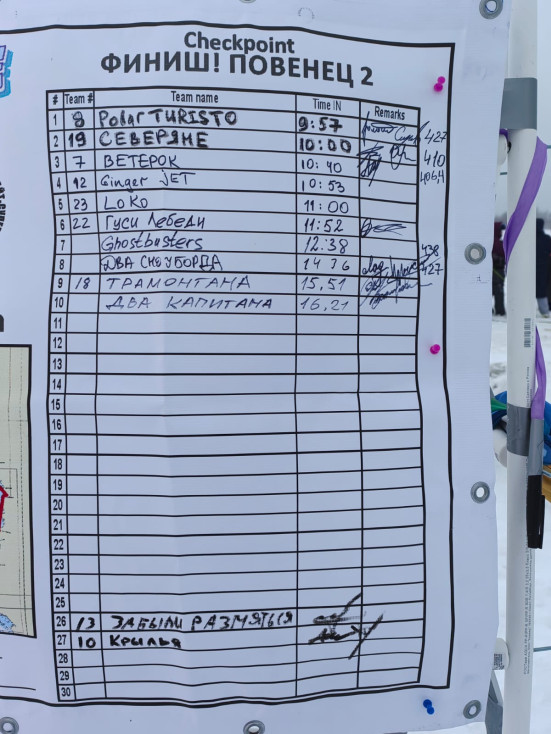 Checkpoint
ФИНИШ! ПОВЕНЕЦ 2
# Team # Team name Time IN Remarks
1 8 Polar TURISTO 9:57
2 19 СЕВЕРЯНЕ 10:00 427
3 7 ВЕТЕРОК 10:40 410
4 12 Ginger JET 10:53 406,4
5 23 LoKo 11:00
6 22 Гуси Лебеди 11:52
7 Ghostbusters 12:38
8 ДВА СНОУБОРДА 14 36 438
9 18 ТРАМОНТАНА 15,51 427
10 ДВА КАПИТАНА 16,21
11
12
13
14
15
16
17
18
19
20
21
22
23
24
25
26 13 ЗАБЫЛИ РАЗМЯТЬСЯ
27 10 КРЫЛЬЯ
28
29
30